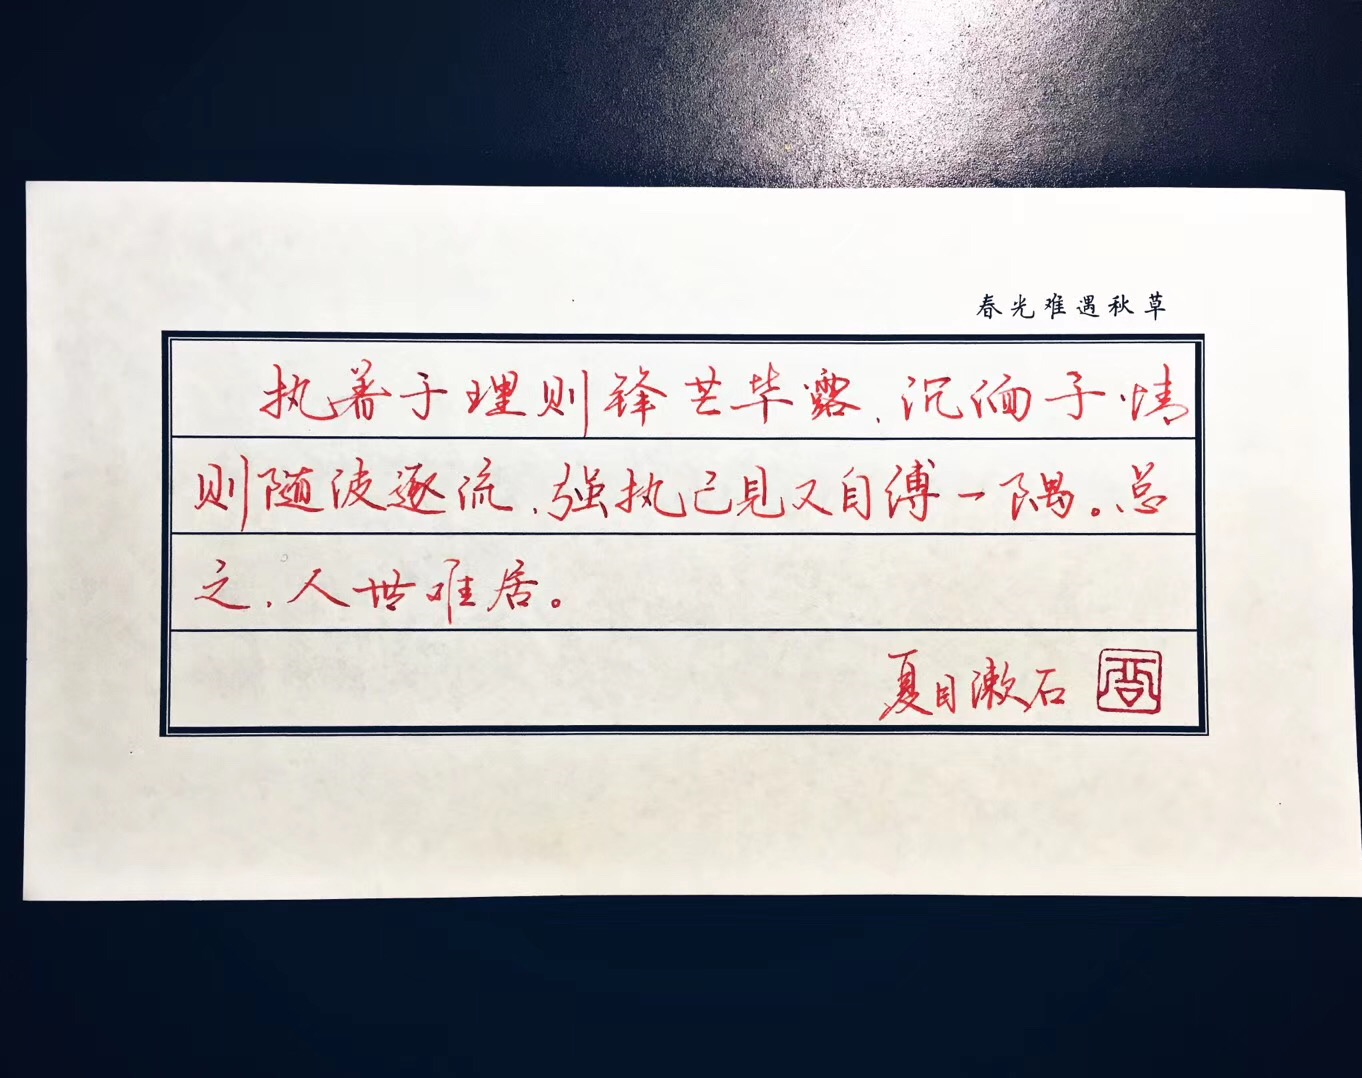 春光难遇秋草
执著于理则锋芒毕露,沉湎于情
则随波逐流,强执己见又自缚一隅。总
之,人世难居。
夏目漱石